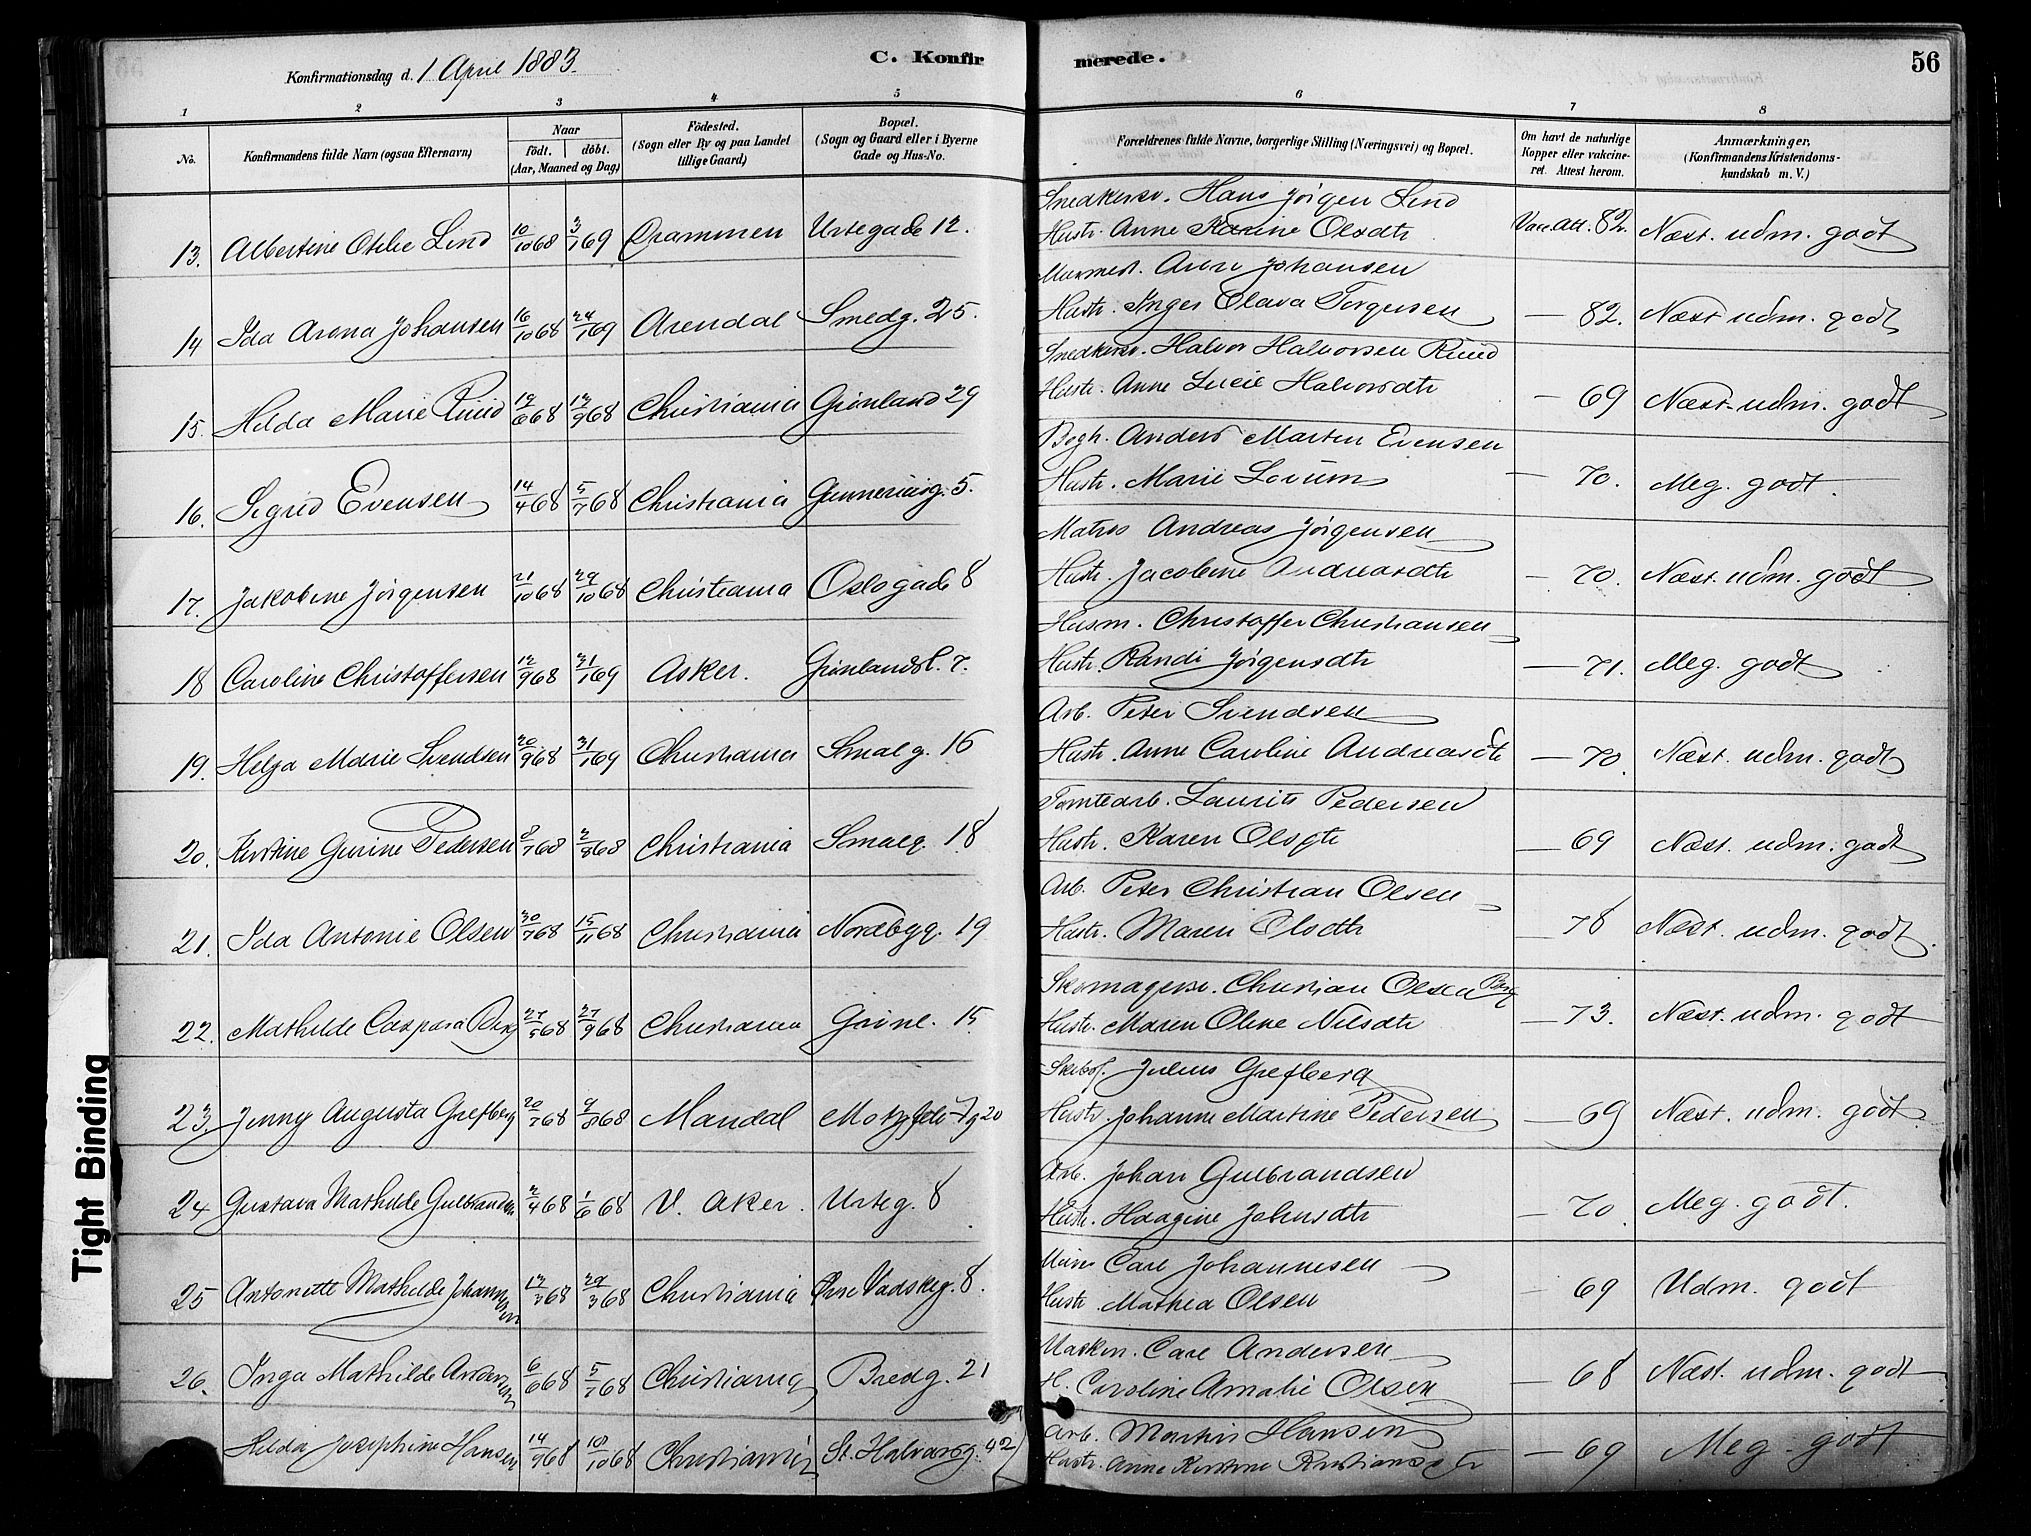 Konfirmationsdag d. 1 April 1883.
C. Konfirmerede.
56
1 2 3 4 5 6 7 8
No.
Konfirmandens fulde Navn (ogsaa Efternavn)
Naar
födt. döbt.
(Aar, Maaned og Dag)
Födested.
(Sogn eller By og paa Landet
tillige Gaard)
Bopæl.
(Sogn og Gaard eller i Byerne
Gade og Hus-No.
Forældrenes fulde Navne, borgerlige Stilling (Næringsvei) og Bopæl.
Om havt de naturlige
Kopper eller vakcine-
ret. Attest herom.
Anmærkninger,
(Konfirmandens Kristendoms-
kundskab m. V.)
Snedkersv. Hans Jörgen Lind
13. Albertine Otilie Lind 10/10 68 3/1 69 Drammen Urtegade 12. Hustr. Anne Karine Olsdtr Vacc. att. 82. Næst. udm. godt
Johansen
14 Ida Arona Johansen 16/10 68 24/1 69 Arendal Smedg. 25. Hustr. Inger Olava Torgersen — 82. Næst udm. godt
Snedkersv. Halvor Halvorsen Ruud
15. Hilda Marie Ruud 12/6 68 13/9 68 Christiania Grönland 29 Hustr. Anne Lucie Halvorsdtr — 69 Næst. udm. godt
Bogh. Anders Martin Evensen
16. Sigrid Evensen 14/4 68 5/7 68 Christiania Gunnerusg. 5. Hustr. Marie Lorum — 70. Meg. godt.
Matros Andreas Jörgensen
17. Jakobine Jörgensen 21/10 68 29/10 68 Christiania Oslogade 8 Hustr. Jacobine Andreasdtr — 70. Næst. udm. godt
Husm. Christoffer Christiansen
18 Caroline Christoffersen 12/9 68 31/1 69 Asker. Grönlandsl. 7. Hustr. Randi Jörgensdtr — 71. Meg. godt
Arb. Peter Svendsen
19. Helga Marie Svendsen 20/9 68 31/1 69 Christiania Smalg. 16 Hustr. Anne Caroline Andreasdtr — 70. Næst. udm. godt
Tomtearb. Laurits Pedersen
20. Kirstine Gurine Pedersen 8/7 68 2/8 68 Christiania Smalg. 18 Hustr. Karen Olsdtr — 69 Næst. udm. godt
Arb. Peter Christian Olsen
21. Ida Antonie Olsen 30/7 68 15/11 68 Christiania Nordbyg. 19 Hustr. Maren Olsdtr — 78 Næst. udm. godt.
Skomagersv. Christian Olsen Berg
22. Mathilde Caspara Berg 27/5 68 27/9 68 Christiania Grönl. 15. Hustr. Maren Oline Nilsdtr — 73. Næst. udm. godt
Julius Grefberg
23. Jenny Augusta Grefberg 20/7 68 9/8 68 Mandal Motzfeldtsg 20 Hustr. Johanne Martine Pedersen — 69 Næst. udm. godt.
Arb. Johan Gulbrandsen
24 Gustava Mathilde Gulbrandsen 2/4 68 1/6 68 V. Aker. Urteg. 8 Hustr. Haagine Johnsdtr — 70. Meg. godt.
Carl Johannesen
25 Antonette Mathilde Johannesen 13/3 68 29/3 68 Christiania Övre Vadskeg. 8. Hustr. Mathea Olsen — 69 Udm. godt
Maskin. Carl Andersen
26. Inga Mathilde Andersen 6/6 68 5/7 68 Christiania Bredg. 21 H. Caroline Amalie Olsen — 68 Næst. udm. godt
Arb. Martin Hansen
Hilda Josephine Hansen 14/9 68 18/10 68 Christiania St. Halvardsg. 42 Hustr. Anne Kirstine Kristiansdtr — 69 Meg. godt
Tight Binding